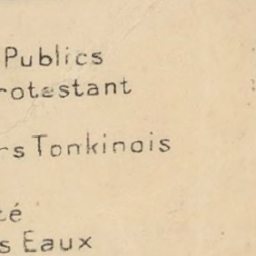 Publics
rotestant
rs Tonkinois
té
s Eaux